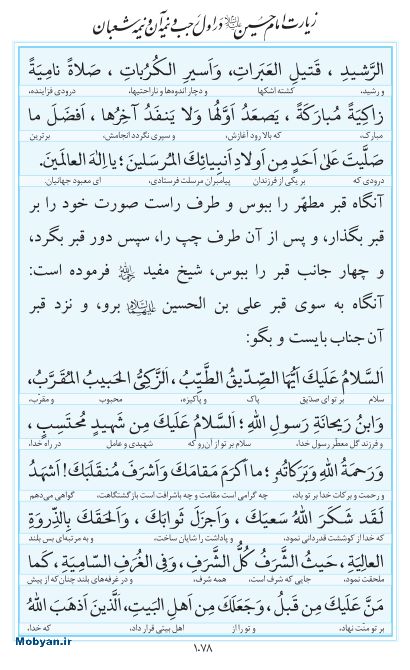 زیارت امام حسین علیه‌السلام در اول رجب و نیمه آن و نیمه شعبان
الرَّشيدِ ، قَتيلِ العَبَراتِ، وَاَسيرِ الكُرُباتِ ، صَلاةً نامِيَةً
و رشید، کشته اشکها و دچار اندوه‌ها و ناراحتیها، درودی فزاینده،
زاكِيَةً مُبارَكَةً ، يَصعَدُ اَوَّلُها وَلا يَنفَدُ آخِرُها ، اَفضَلَ ما
مبارک، که بالا رود آغازش، و سپری نگردد انجامش، برترین
صَلَّيتَ عَلىٰ اَحَدٍ مِن اَولادِ اَنبِيائِكَ المُرسَلينَ ؛ يا اِلٰهَ العالَمينَ.
درودی که بر یکی از فرزندان پیامبران مرسلت فرستادی، ای معبود جهانیان.
آنگاه قبر مطهّر را ببوس و طرف راست صورت خود را بر
قبر بگذار، و پس از آن طرف چپ را، سپس دور قبر بگرد،
و چهار جانب قبر را ببوس، شیخ مفید فرموده است:
آنگاه به سوی قبر علی بن الحسین برو، و نزد قبر
آن جناب بایست و بگو:
اَلسَّلامُ عَلَيكَ اَيُّهَا الصِّدّيقُ الطَّيِّبُ ، اَلزَّكِيُّ الحَبيبُ المُقَرَّبُ،
سلام بر تو ای صدّیق پاک و پاکیزه، محبوب و مقرّب،
وَابنُ رَيحانَةِ رَسولِ اللّٰهِ ؛ اَلسَّلامُ عَلَيكَ مِن شَهيدٍ مُحتَسِبٍ ،
و فرزند گل معطّر رسول خدا، سلام بر تو از آن رو که شهیدی و عامل در راه خدا،
وَرَحمَةُ اللّٰهِ وَبَرَكاتُهُ ؛ ما اَكرَمَ مَقامَكَ وَاَشرَفَ مُنقَلَبَكَ! اَشهَدُ
و رحمت و برکات خدا بر تو باد، چه گرامی است مقامت و چه باشرافت است بازگشتگاهت، گواهی می‌دهم
لَقَد شَكَرَ اللّٰهُ سَعيَكَ ، وَاَجزَلَ ثَوابَكَ ، وَاَلحَقَكَ بِالذِّروَةِ
که خدا از کوششت قدردانی نمود، و پاداشت را شایان ساخت، و به مرتبه‌ای بس بلند
العالِيَةِ ، حَيثُ الشَّرَفُ كُلُّ الشَّرَفِ، وَفِى الغُرَفِ السّامِيَةِ ، كَما
ملحقت نمود، جایی که شرف است، همه شرف، و در غرفه‌های بلند چنان‌که از پیش
مَنَّ عَلَيكَ مِن قَبلُ ، وَجَعَلَكَ مِن اَهلِ البَيتِ ، اَلَّذينَ اَذهَبَ اللّٰهُ
بر تو منّت نهاد، و تو را از اهل بیتی قرار داد، که خدا،
۱۰۷۸
Mobyan.ir